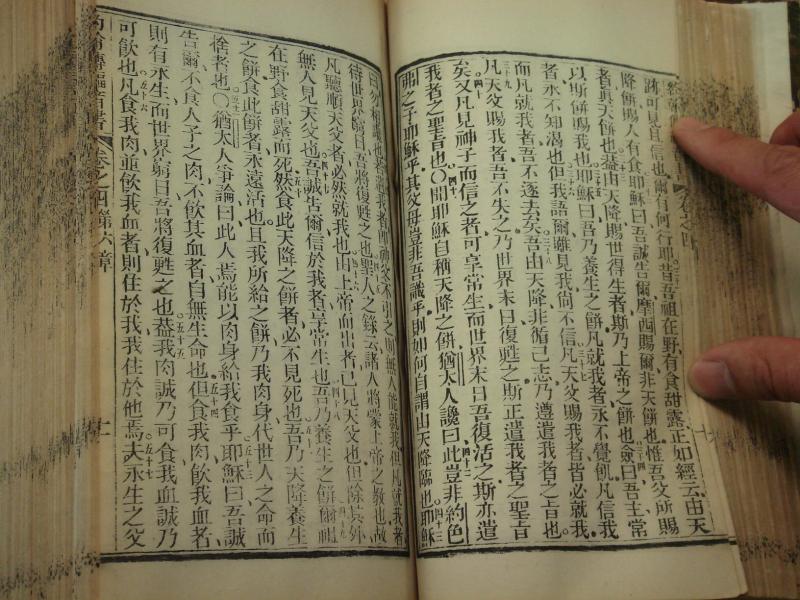 卷之四
跡可見自信也、爾有何行耶、昔吾祖在野有食甜露、正如經云由天
降餅賜人有食、耶穌曰、吾誠告爾、摩西賜爾非天餅也、惟吾父所賜
者眞天餅也、蓋由天降賜世得生者、斯乃上帝之餅也、僉曰、吾主常
以斯餅賜我也、耶穌曰、吾乃養生之餅、凡就我者、永不覺飢、凡信我
者、永不知渴也、但我語爾雖見我尚不信、凡天父賜我者、皆必就我、
而凡就我者、吾不逐去矣、吾由天降、非循己志、乃遵遣我者之旨也、
凡天父賜我者、吾不失之、乃世界末日復甦之、斯正遣我者之聖旨
矣、又凡見神子而信之者、可享常生、而世界末日吾復活之、斯亦遣
我者之聖旨也、○聞耶穌自稱天降之餅、猶太人讒曰、此豈非約色
弗之子耶穌乎、其父母豈非吾識乎、則如何自謂由天降臨也、耶穌
曰、勿相譏也、若遣我者即神父不引之、則無人能就我、但凡就我者、
待世界窮日、吾將復甦之也、聖人之錄云、諸人將蒙上帝之教也、故
凡聽順天父者、必然就我也、由上帝而出者、已見天父也、但除其外、
無人見天父也、吾誠告爾、信於我者、享常生也、吾乃養生之餅、爾祖
在野食甜露而死、然食此天降之餅者、必不見死也、吾乃天降養生
之餅、食此餅者、永遠活也、且我所給之餅、乃我肉身、代世人之命而
捨者也、○猶太人爭論曰、此人焉能以肉身給我食乎、耶穌曰、吾誠
告爾、不食人子之肉、不飲其血者、自無生命也、但食我肉飲我血者、
則有永生、而世界窮日、吾將復甦之也、蓋我肉誠乃可食、我血誠乃
可飲也、凡食我肉並飲我血者、則住於我、我住於他焉、夫永生之父
約翰傳福音書 卷之四第六章 十一